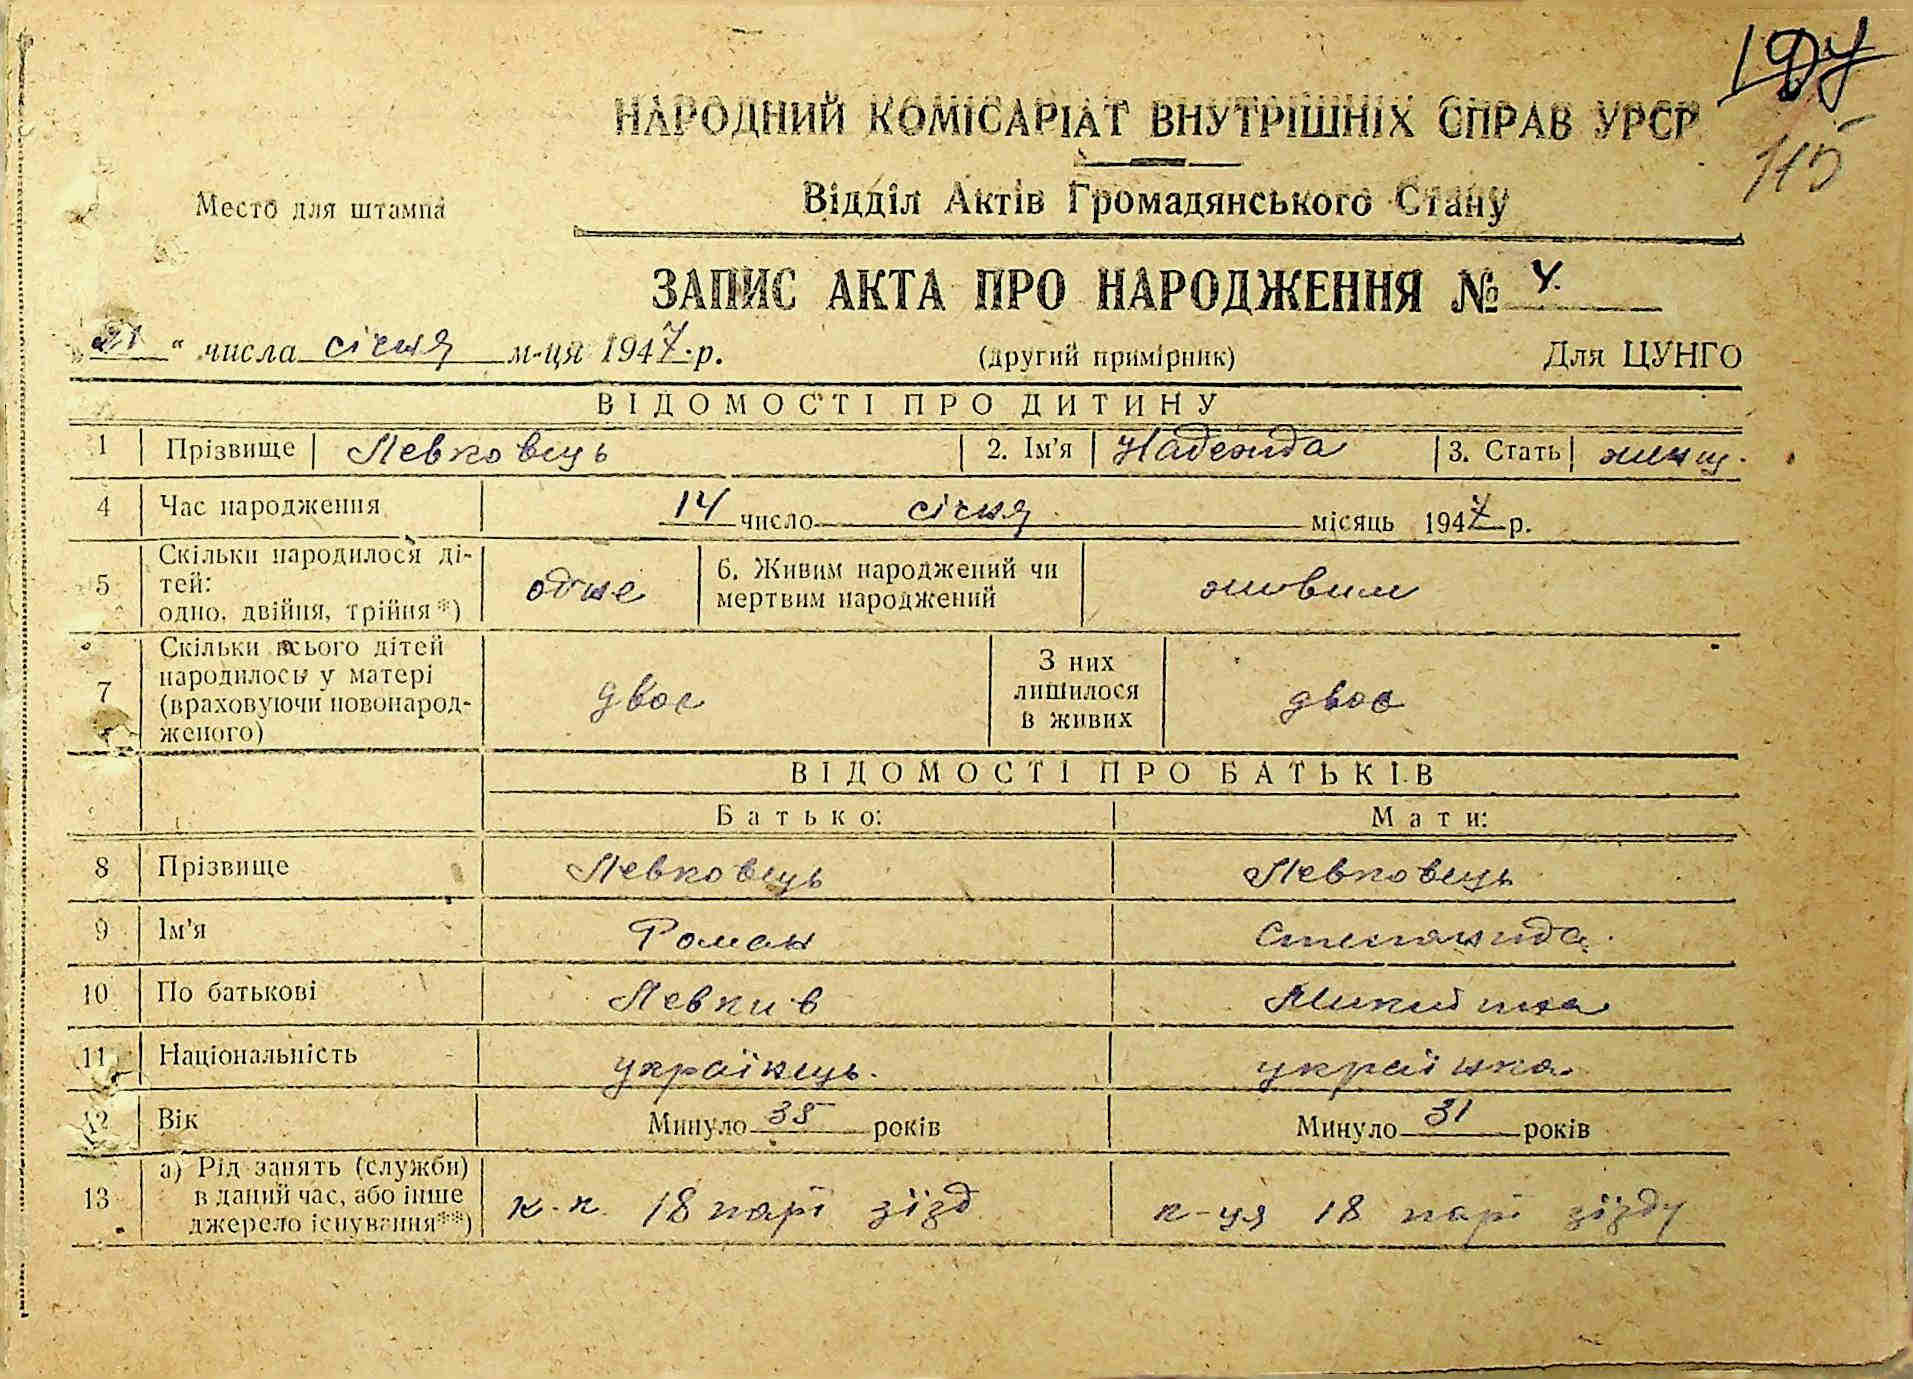 115
НАРОДНИЙ КОМІСАРІАТ ВНУТРІШНІХ СПРАВ УРСР
Место для штампа
Відділ Актів Громадянського Стану
ЗАПИС АКТА ПРО НАРОДЖЕННЯ № 4.
„21“ числа січня м-ця 1947 р. (другий примірник) Для ЦУНГО
ВІДОМОСТІ ПРО ДИТИНУ
1 Прізвище Левковець 2. Ім'я Надежда 3. Стать жінщ.
4 Час народження 14 число січня місяць 1947 р.
5 Скільки народилося ді-
тей:
одно, двійня, трійня*) одне 6. Живим народжений чи
мертвим народжений живим
7 Скільки всього дітей
народилось у матері
(враховуючи новонарод-
женого) двоє З них
лишилося
в живих двоє
ВІДОМОСТІ ПРО БАТЬКІВ
Батько: Мати:
8 Прізвище Левковець Левковець
9 Ім'я Роман Степанида
10 По батькові Левків Микитина
11 Національність українець. українка
12 Вік Минуло 35 років Минуло 31 років
13 а) Рід занять (служби)
в даний час, або інше
джерело існування**) к-к 18 парт зїзд к-ця 18 парт зїзду